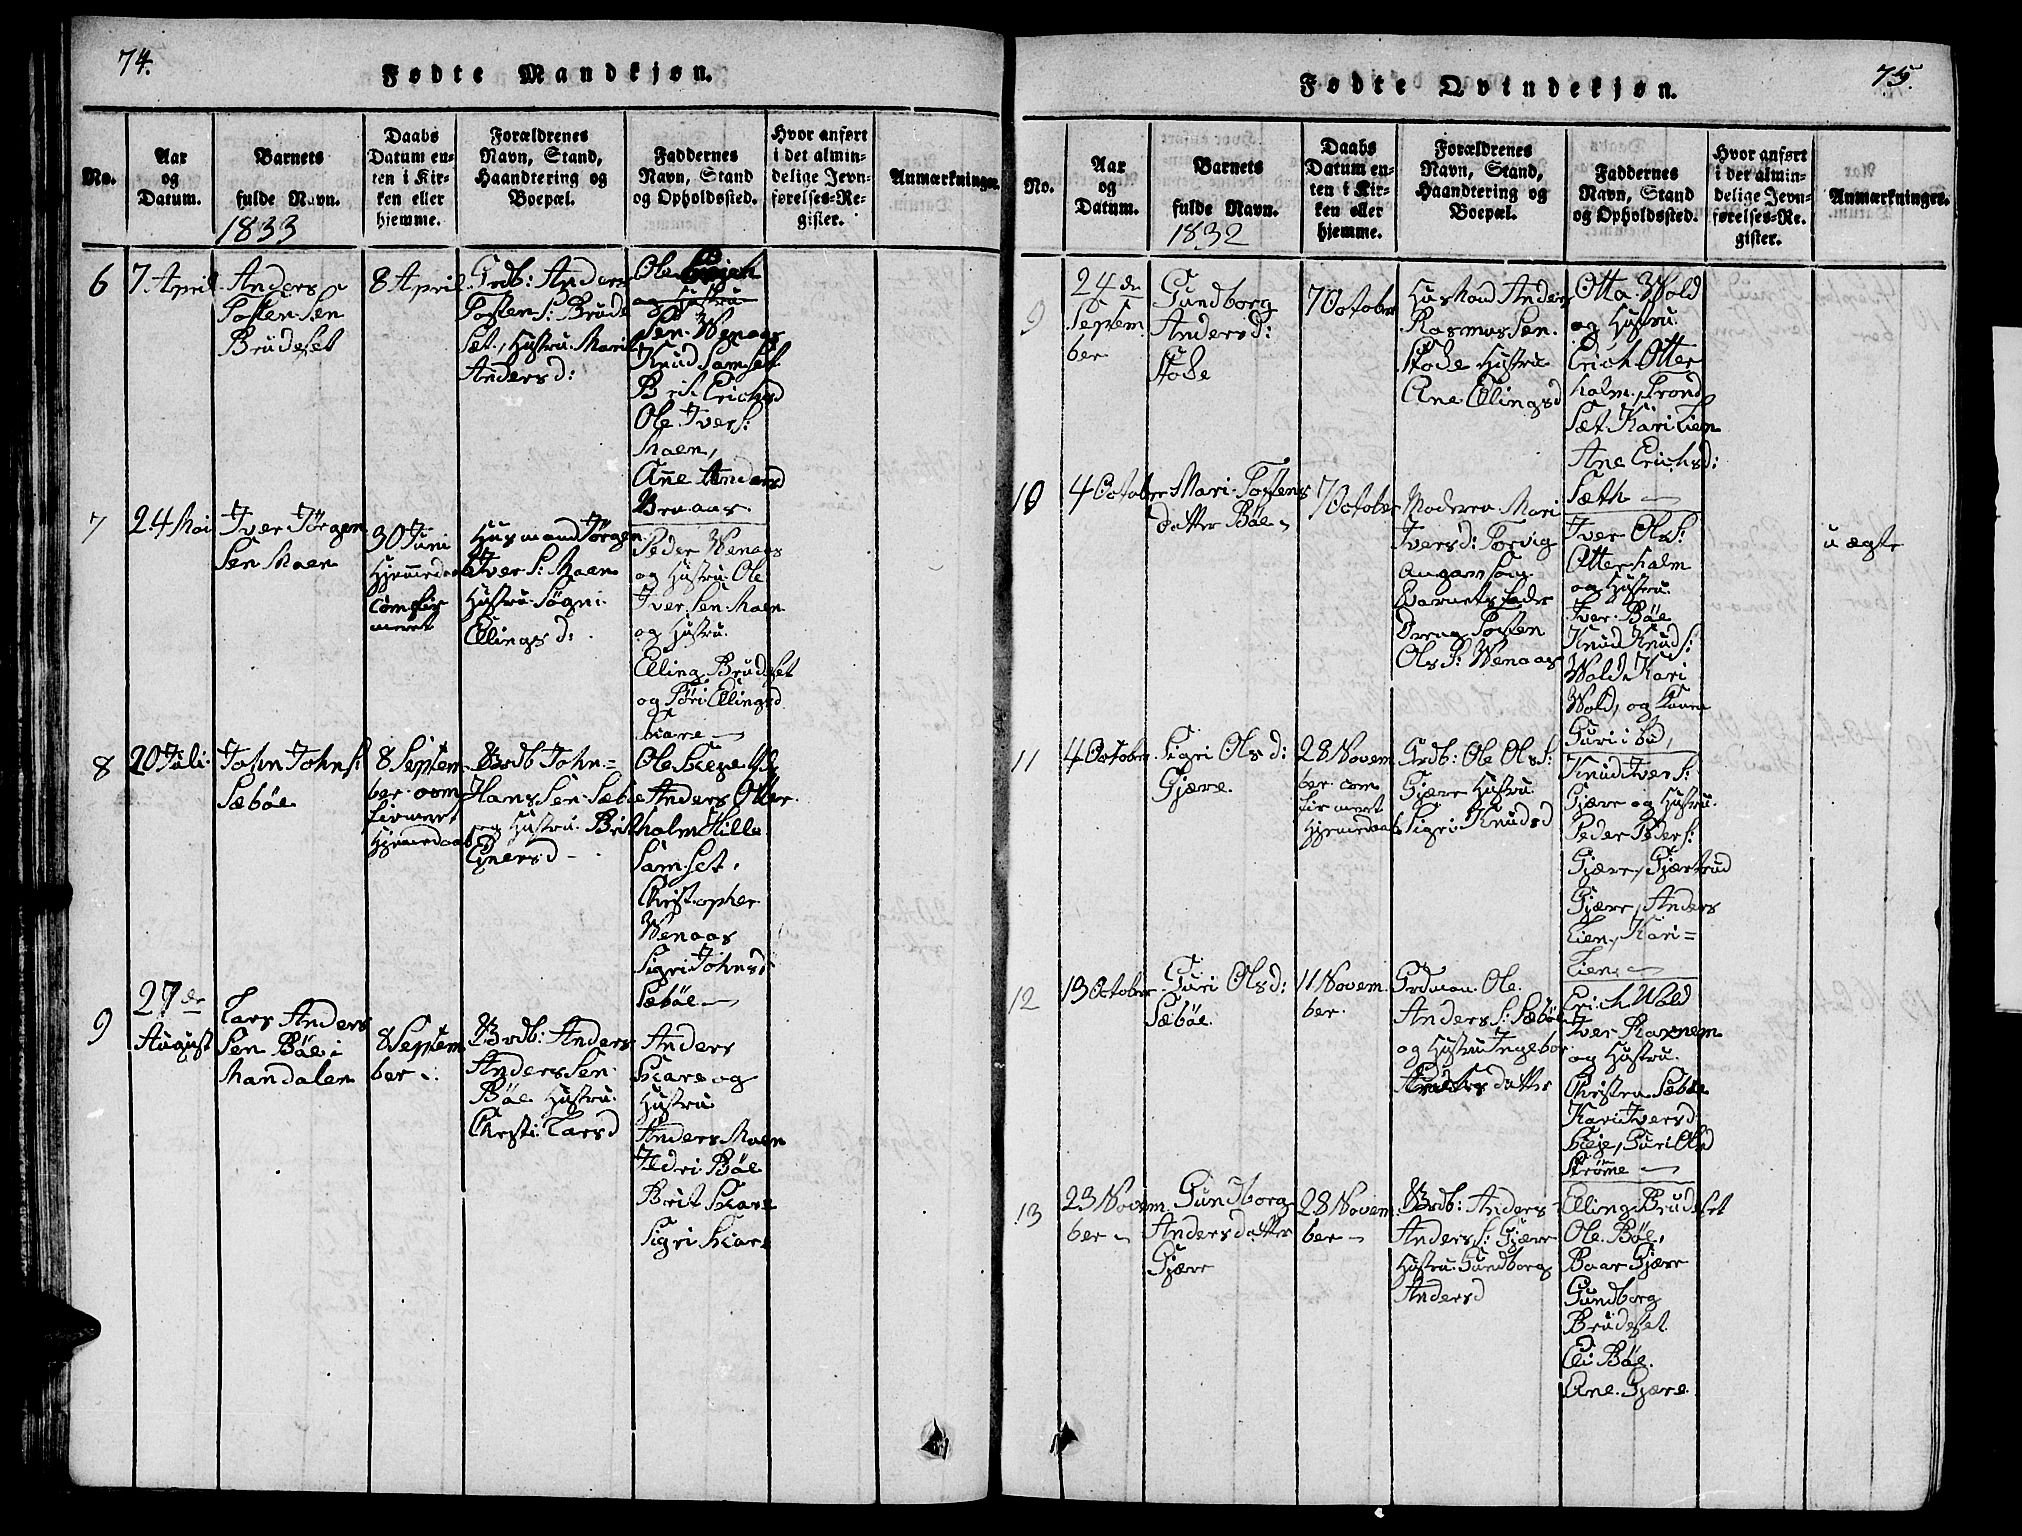 74.
Fødte Mandkjøn.
No.
Aar
og
Datum.
Barnets
fulde Navn.
1833
Daabs
Datum en-
ten i Kir-
ken eller
hjemme.
Forældrenes
Navn, Stand,
Haandtering og
Boepæl.
Faddernes
Navn, Stand
og Opholdssted.
Hvor anført
i det almin-
delige Jevn-
førelses-Re-
gister.
Anmærkninger.
6
7 April
Anders
Tosten Sen
Brudeset
8 April
Grdb: Anders
Tosten S: Brude
Sæt, Hustru Marit
Anders d:
Ole
og Hustru
Sen. Wenaas
Knud Samset
Brit Erichsd
Ole Ivers:
Maen,
Ane Andersd
7
24 Mai
Iver Jørgen
Sen Maen
30 Juni
Hjemmedaabt
comfir
meret
Husmand Jørgen
Iver S: Maen
Hustru Søgni
Ellings d:
Peder Wenaas
og Hustru Ole
Iver Sen Maen
og Hustru
Elling Brudeset
og Ellingsd
Skare
8
20 Juli
John Johns:
Sæbøe
8 Septem
ber com
firmert
Hjemedaabt
Grdb John
Hans Sen Sæbøe
og Hustru Brit
Einersd
Ole
Anders Otter
holm Hille
Samset,
Christopher
Wenaas
Sigri Johnsd
Sæbøe
9
27 de
August
Lars Anders
Sen Bøe i
Mandalen
8 Septem
ber
Grdb: Anders
Anders Sen
Bøe Hustru
Christi Larsd
Anders
Skare og
Hustru
Anders Maen
Ildri Bøe
Brit Skare
Sigri Skare
75.
Fødte Qvindekjøn.
No.
Aar
og
Datum.
Barnets
fulde Navn.
1832
Daabs
Datum en-
ten i Kir-
ken eller
hjemme.
Forældrenes
Navn, Stand,
Haandtering og
Boepæl.
Faddernes
Navn, Stand
og Opholdssted.
Hvor anført
i det almin-
delige Jevn-
førelses-Re-
gister.
Anmærkninger.
9
24 de
Septem
ber
Gundborg
Andersd:
7 October
Husmand Anders
Rasmus Sen
Hustru
Ane Ellingsd
Otta Wold
og Hustru
Erich Otter
holm, Trond
Sæt Kari Lien
Ane Erichsd:
Sæth
10
4 October
Mari Tostens
datter Bøe
7 October
Moderen Mari
Iversd: Torvig
angav som
Barnets Fader
Dreng Tosten
Ols S: Wenaas
Iver Ols:
Otterholm
og Hustru
Iver Bøe
Knud Knuds:
Wold Kari
Wold, og
Guri
uægte
11
4 October
Sigri Ols d:
Gjære
28 Novem
ber com
firmert
Hjemedaabt
Grdb: Ole Ols S:
Gjære Hustru
Sigri Knudsd
Knud Iver S:
Gjære og Hustru
Peder Peders:
Gjære, Gjærtrud
Gjære, Anders
Lien, Kari
Lien
12
13 October
Guri Olsd:
Sæbøe
11 Novem
ber.
Grdman Ole
Anders S: Sæbøe
og Hustru Ingebor
datter
Erich Wold
Iver
og Hustru
Christen Sæbøe
Kari Iversd
Guri Olsd
Strømme
13
23 Novem
ber
Gundborg
Andersdatter
Gjære
28 Novem
ber
Grdb: Anders
Anders S: Gjære
Hustru Gundborg
Andersd
Elling Brudeset
Ole Bøe,
Baar Gjære
Gundborg
Brudeset
Eli Bøe.
Ane Gjære.